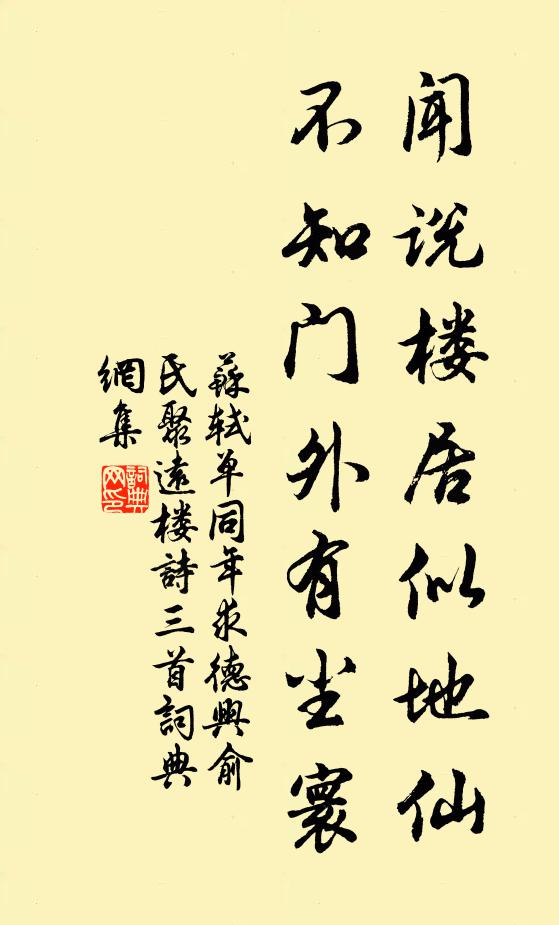 闻说楼居似地仙
不知门外有尘寰
蘇軾单同年求德興俞
氏聚遠楼詩三首詞典
網集
詞典
网印